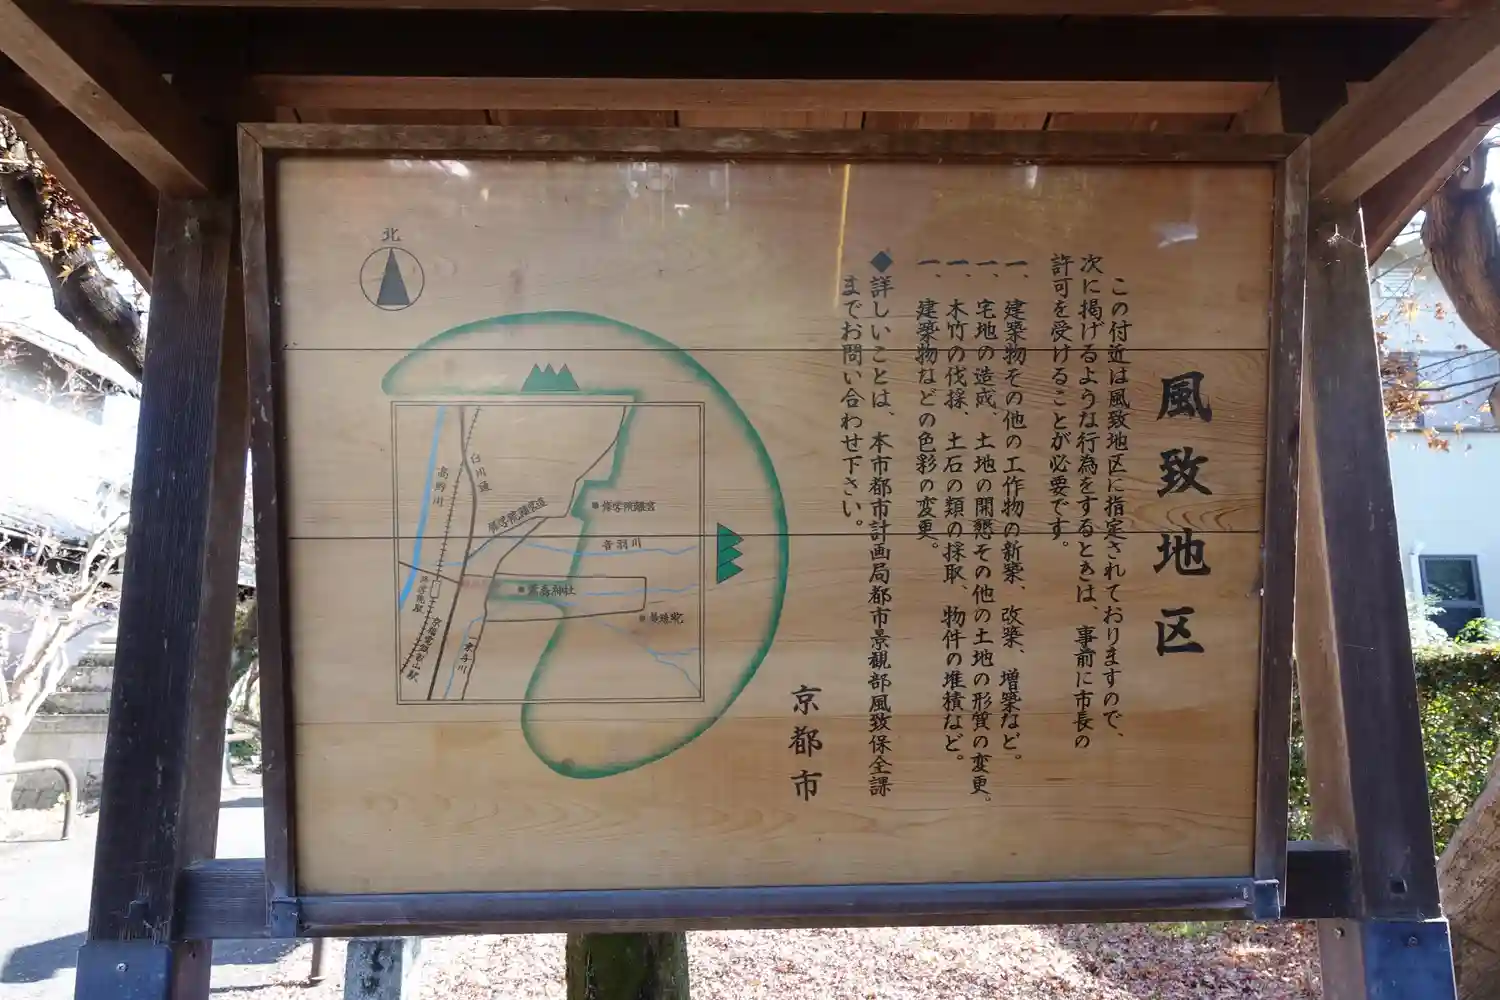 風致地区
この付近は風致地区に指定されておりますので、
次に掲げるような行為をするときは、事前に市長の
許可を受けることが必要です。
一、建築物その他の工作物の新築、改築、増築など。
一、宅地の造成、土地の開懇その他の土地の形質の変更。
一、木竹の伐採、土石の類の採取、物件の堆積など。
一、建築物などの色彩の変更。
◆詳しいことは、本市都市計画局都市景観部風致保全課
までお問い合わせ下さい。
京都市
北
高野川
白川通
修学院離宮道
修学院離宮
音羽川
鷺森神社
曼殊院
修学院駅
京福電鉄叡山線